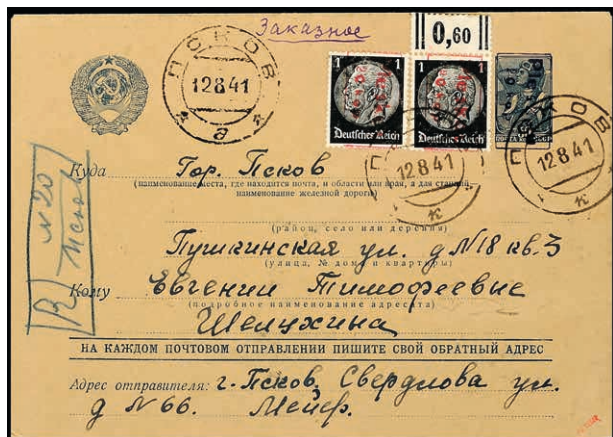 Заказное
0,60
ПСКОВ
12 8 41
а
1
1
Deutsches Reich
Deutsches Reich
ПОЧТА СССР
12 8 41
к
12 8 41
к
R
N 20
Псков
Куда Гор. Псков
(наименование места, где находится почта, и области или края, а для станций
наименование железной дороги)
(район, село или деревня)
Пушкинская ул. д N 18 кв. 3
(улица, № дома и квартиры)
Кому Евгении Тимофеевне
(подробное наименование адресата)
Шелухина
НА КАЖДОМ ПОЧТОВОМ ОТПРАВЛЕНИИ ПИШИТЕ СВОЙ ОБРАТНЫЙ АДРЕС
Адрес отправителя: г. Псков, Свердлова ул.
д N 66. Мейер.